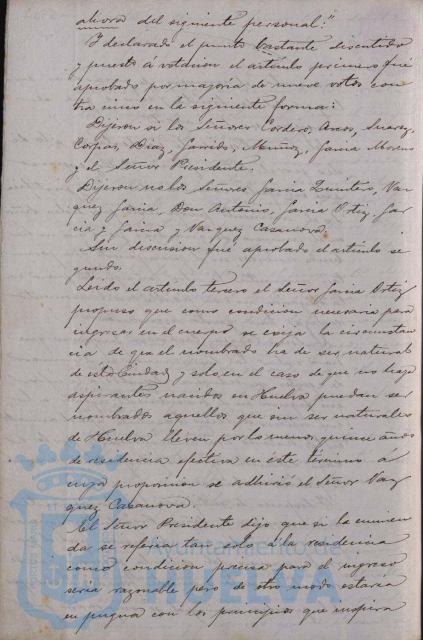 ahora del siguiente personal."
Y declarado el punto bastante discutido
y puesto á votación el artículo primero fué
aprobado por mayoría de nueve votos con
tra cinco en la siguiente forma:
Dijeron si los Señores Cordero, Suarez,
Corpas, Diaz, Garrido, Muñoz, Garcia Moreno
y el Señor Presidente.
Dijeron no los Señores Garcia Quintero, Vaz
quez Garcia, Don Antonio, Garcia Ortiz, Gar
cia y Garcia y Vazquez Casanova.
Sin discusion fué aprobado el artículo se
gundo.
Leido el artículo tercero el Señor Garcia Ortiz
propuso que como condicion necesaria para
ingresar en el cuerpo se exija la circunstan
cia de que el nombrado ha de ser natural
de esta Ciudad y solo en el caso de que no haya
aspirantes nacidos en Huelva puedan ser
nombrados aquellos que sin ser naturales
de Huelva lleven por lo menos quince años
de residencia efectiva en este término á
cuya proposicion se adhirió el Señor Vaz
quez Casanova.
El Señor Presidente dijo que si la enmien
da se referia tan solo á la residencia
como condicion precisa para el ingreso
seria razonable pero de otro modo estaria
en pugna con los principios que inspira
Ayuntamiento de
HUELVA